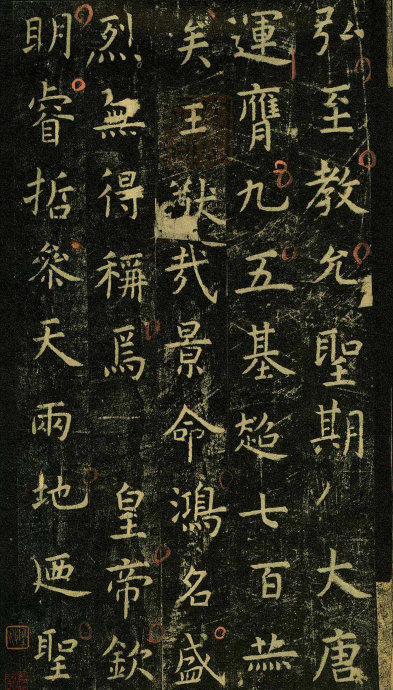 弘至教允聖期大唐
運膺九五基超七百赫
矣王猷哉景命鴻名盛
烈無得稱焉皇帝欽
明睿哲叅天兩地迺聖